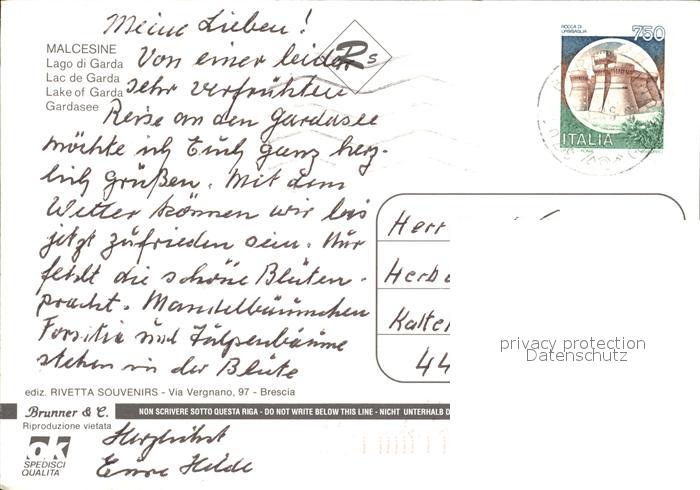 Meine Lieben!
MALCESINE
Lago di Garda
Lac de Garda
Lake of Garda
Gardasee
Von einer leider
sehr verfrühten
Reise an den Gardasee
möchte ich Euch ganz herz-
lich grüßen. Mit dem
Wetter können wir bis
jetzt zufrieden sein. Nur
fehlt die schöne Blüten-
pracht. Mandelbäumchen
Forsitia und Tulpenbäume
stehen in der Blüte
ediz. RIVETTA SOUVENIRS - Via Vergnano, 97 - Brescia
Brunner & C.
NON SCRIVERE SOTTO QUESTA RIGA - DO NOT WRITE BELOW THIS LINE - NICHT UNTERHALB D
Riproduzione vietata
ok
SPEDISCI
QUALITA'
Herzlichst
Eure Hilde
Rs
ROCCA DI
URBISAGLIA
750
ITALIA
Herr
Herb
Kalte
44
privacy protection
Datenschutz